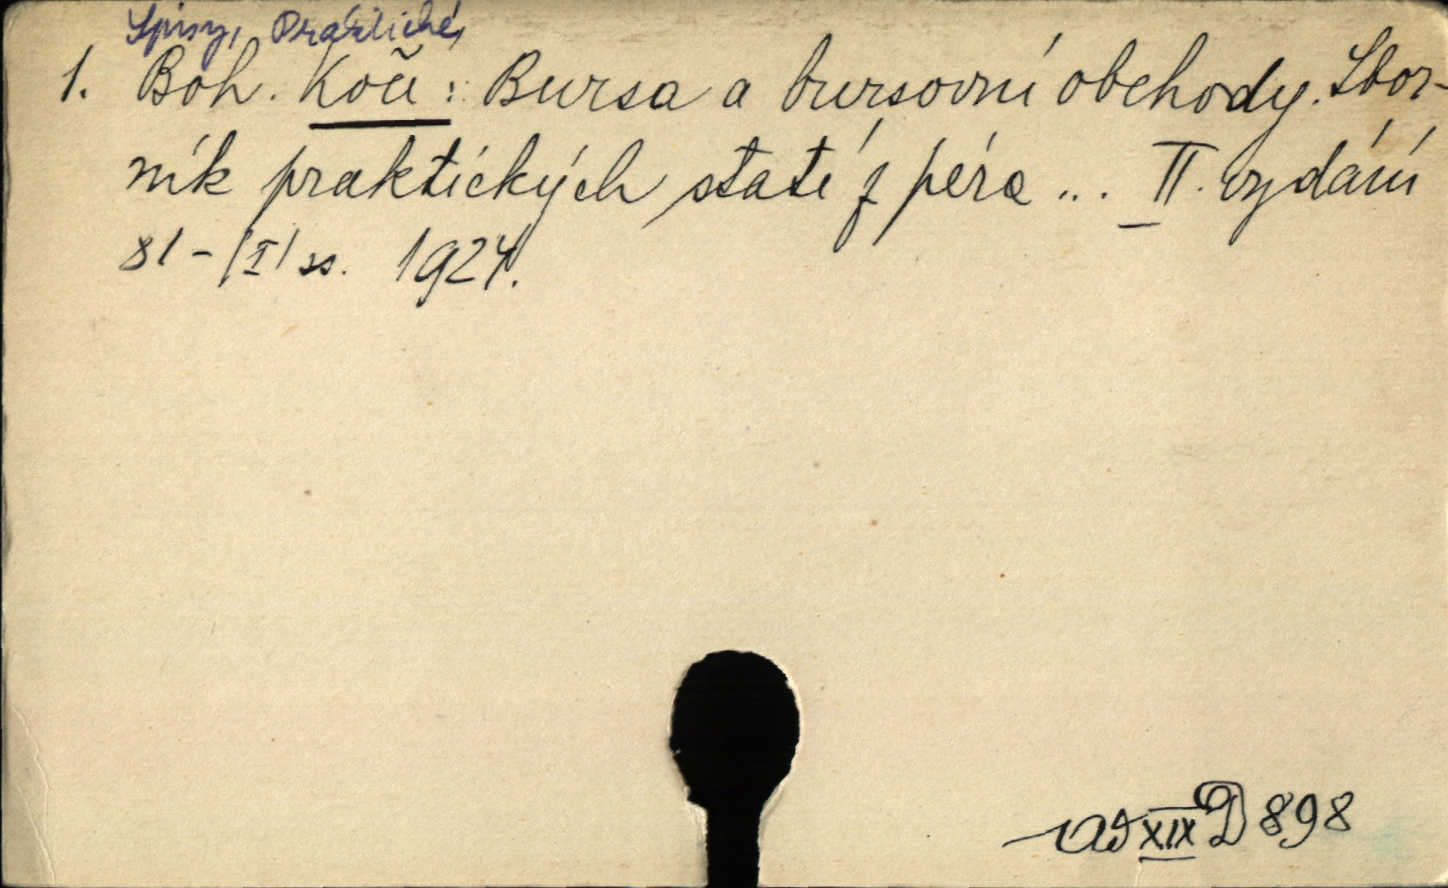 Spisy, Praktické,
1. Boh. Kočí: Bursa a bursovní obchody. Sbor-
ník praktických statí z péra ... II. vydání
81-|I| ss. 1924.
XIX D 898